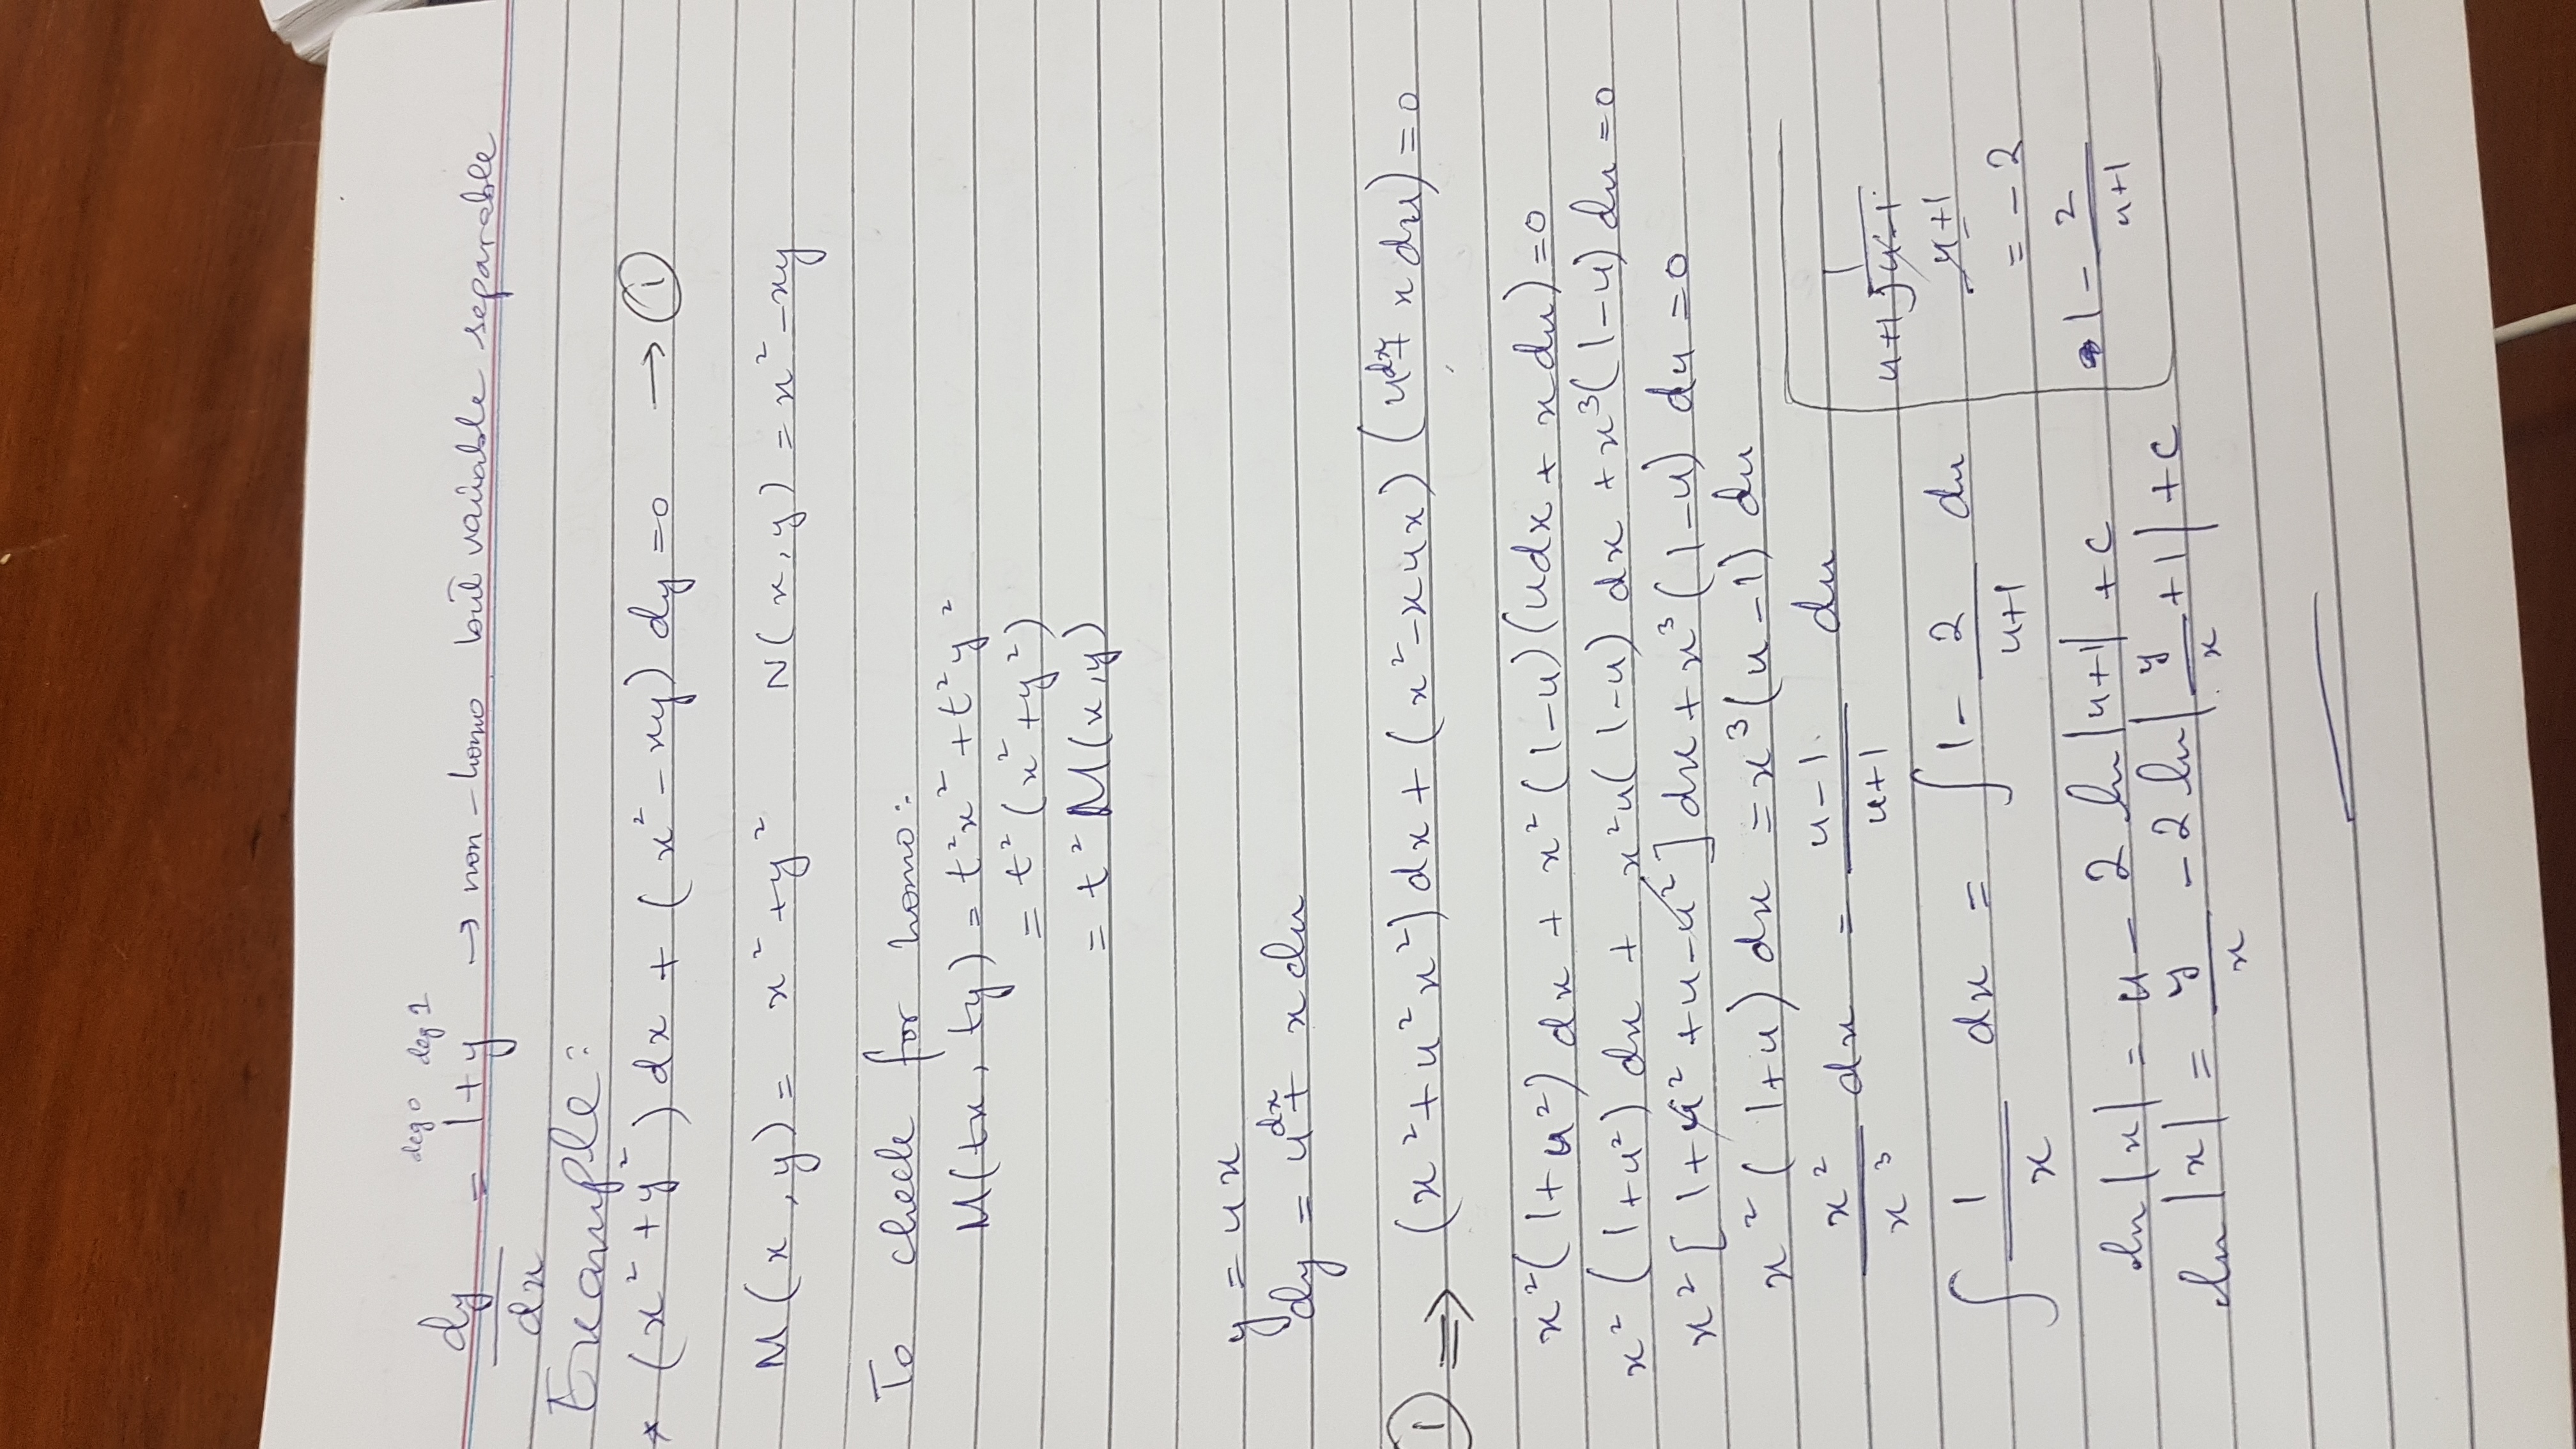 deg 0 deg 1
dy/dx = 1 + y → non-homo but variable separable
Example:
* (x² + y²) dx + (x² - xy) dy = 0 → ①
M(x, y) = x² + y² N(x, y) = x² - xy
To check for homo:
M(tx, ty) = t²x² + t²y²
= t² (x² + y²)
= t² M(x, y)
y = ux
dy = u dx + x du
① ⇒ (x² + u²x²) dx + (x² - xux) (u dx + x du) = 0
x² (1 + u²) dx + x² (1 - u) (u dx + x du) = 0
x² (1 + u²) dx + x²u (1 - u) dx + x³ (1 - u) du = 0
x² [1 + u² + u - u²] dx + x³ (1 - u) du = 0
x² (1 + u) dx = x³ (u - 1) du
x²/x³ dx = (u - 1)/(u + 1) du
∫ 1/x dx = ∫ 1 - 2/(u + 1) du
ln |x| = u - 2 ln |u + 1| + c
ln |x| = y/x - 2 ln |y/x + 1| + c
1
u+1 ) u-1
u+1
= -2
1 - 2/(u + 1)